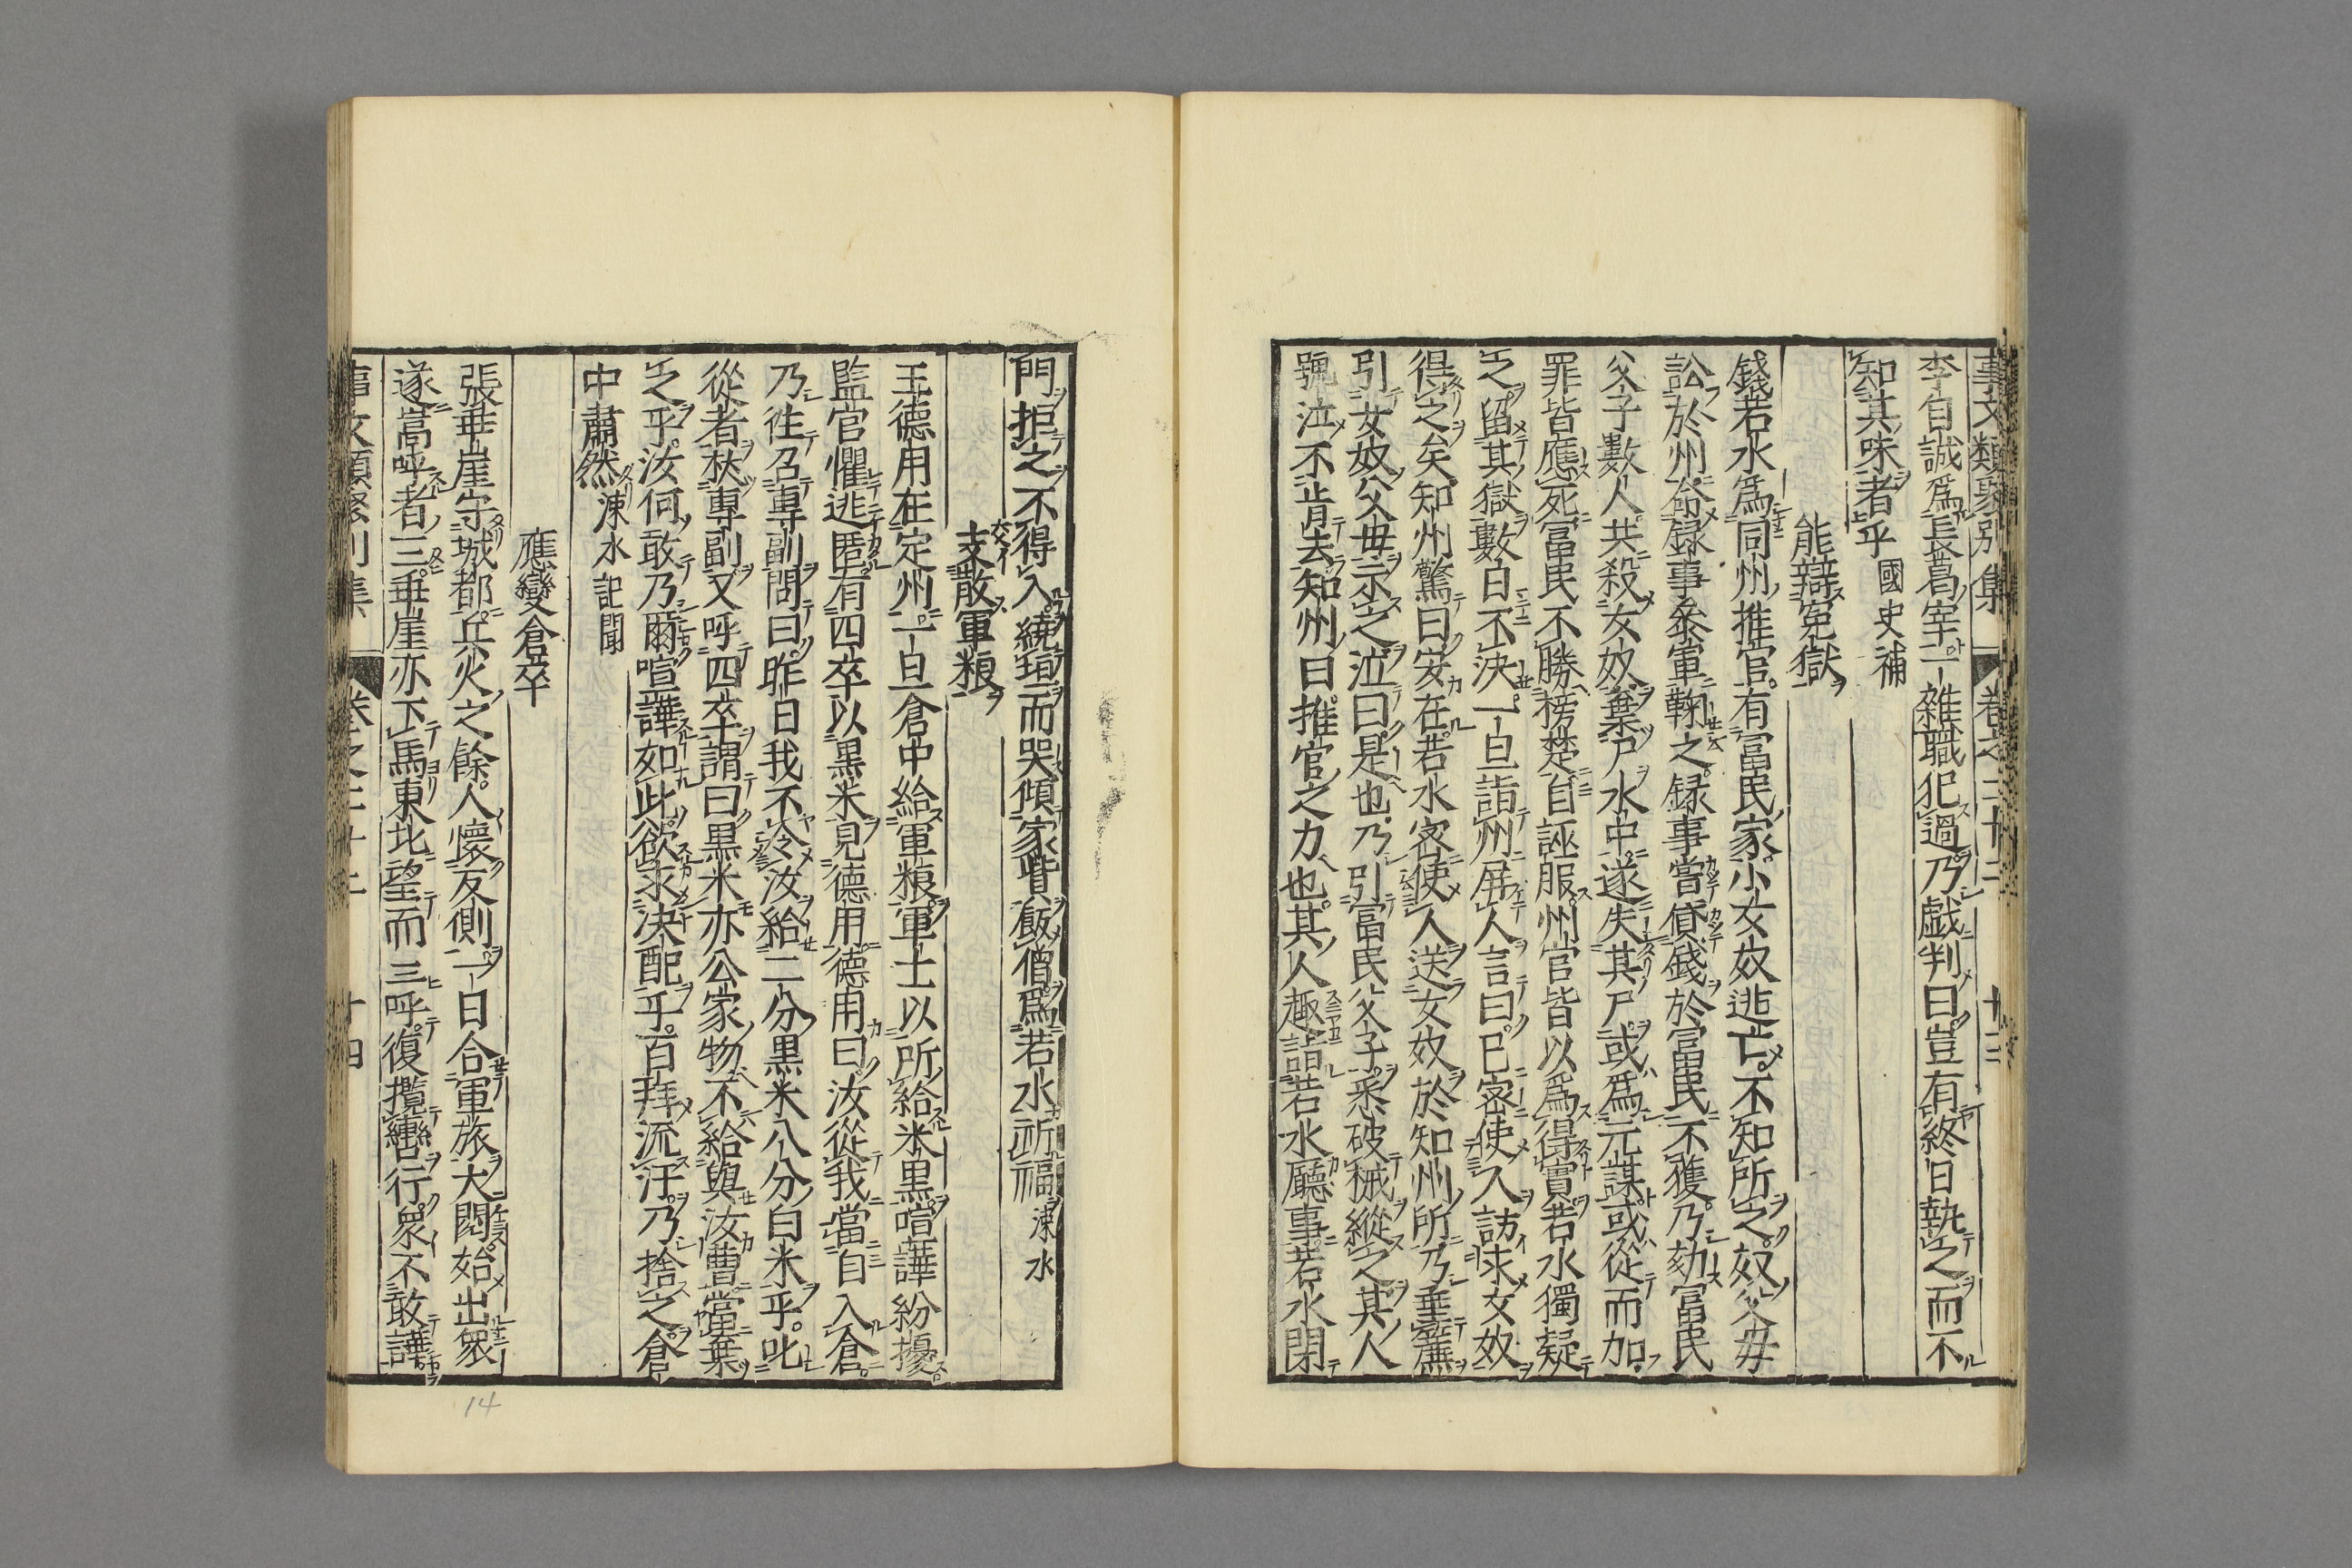 李白誠爲長葛宰一雜職犯過乃戲判曰豈有終日執之而不
知其味者乎國史補
能辯寃獄
錢若水爲同州推官有富民家小女奴逃亡不知所之奴父母
訟於州命録事參軍鞠之録事嘗貸錢於富民不獲乃劾富民
父子數人共殺女奴棄尸水中遂失其尸或爲元謀或從而加
罪皆應死富民不勝榜楚自誣服州官皆以爲得實若水獨疑
之留其獄數日不決一旦詣州屏人言曰已密使人訪求女奴
得之矣知州驚曰安在若水密使人送女奴於知州所乃垂簾
引女奴父母示之泣曰是也乃引富民父子悉破械縱之其人
號泣不肯去知州曰推官之力也其人趣詣若水廳事若水閉
門拒之不得入繞垣而哭傾家貲飯僧爲若水祈福涑水
支散軍粮
王德用在定州一旦倉中給軍粮軍士以所給米黒喧譁紛擾
監官懼逃匿有四卒以黒米見德用德用曰汝從我當自入倉
乃徃召專副問曰昨日我不令汝給二分黒米八分白米乎叱
從者杖專副又呼四卒謂曰黒米亦公家物不給與汝曹當棄
之乎汝何敢乃爾喧譁如此欲求決配乎百拜流汗乃捨之倉
中肅然涑水記聞
應變倉卒
張垂崖守城都兵火之餘人懷反側一日合軍旅大閲始出衆
遂嵩呼者三垂崖亦下馬東北望而三呼復攬轡行衆不敢譁
事文類聚別集 卷之二十二 十四
14